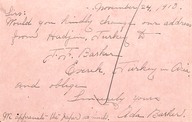 November 24, 1913.
Sirs:
Would you kindly change our address
from Hadjin, Turkey to
Fox Barker
Everek, Turkey - Asia
and oblige
Sincerely yours
Ada Barker.